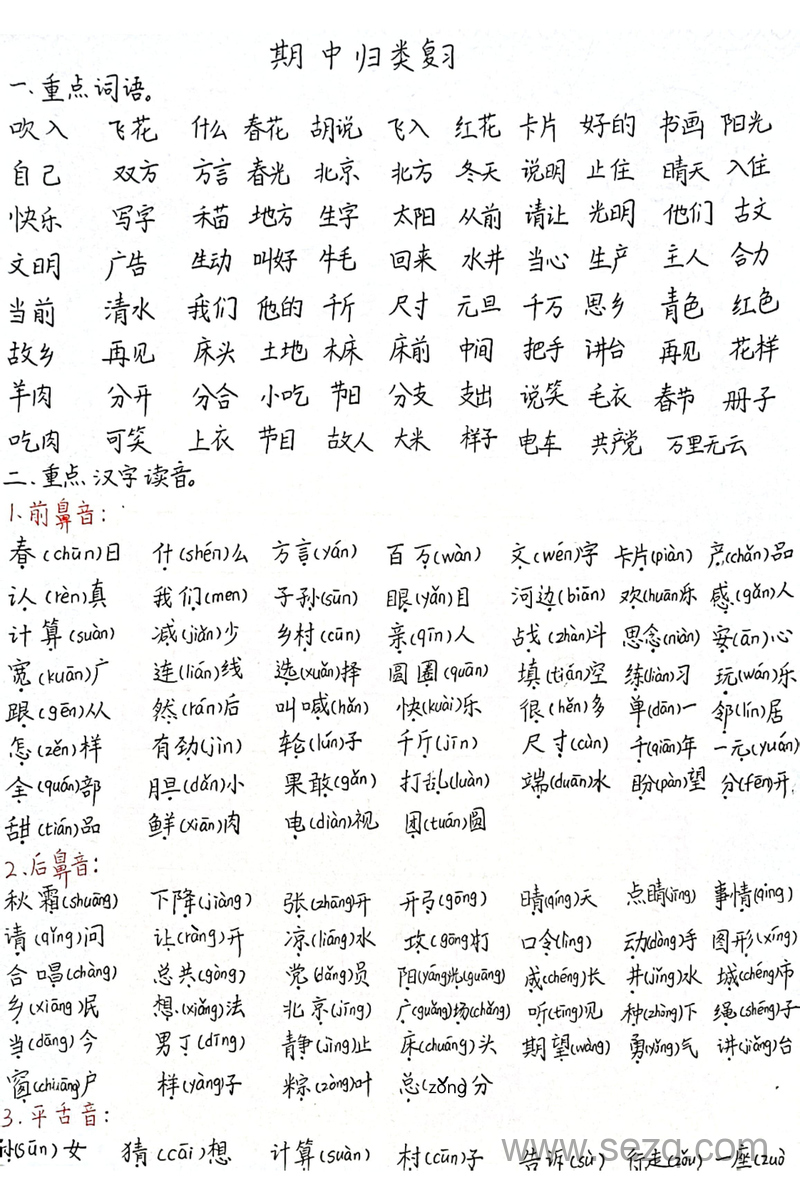 期中归类复习
一.重点词语。
吹入 飞花 什么 春花 胡说 飞入 红花 卡片 好的 书画 阳光
自己 双方 方言 春光 北京 北方 冬天 说明 止住 晴天 入住
快乐 写字 禾苗 地方 生字 太阳 从前 请让 光明 他们 古文
文明 广告 生动 叫好 牛毛 回来 水井 当心 生产 主人 合力
当前 清水 我们 他的 千斤 尺寸 元旦 千万 思乡 青色 红色
故乡 再见 床头 土地 木床 床前 中间 把手 讲台 再见 花样
羊肉 分开 分合 小吃 节日 分支 支出 说笑 毛衣 春节 册子
吃肉 可笑 上衣 节目 故人 大米 样子 电车 共产党 万里无云
二.重点汉字读音。
1.前鼻音:
春(chūn)日 什(shén)么 方言(yán) 百万(wàn) 文(wén)字 卡片(piàn) 产(chǎn)品
认(rèn)真 我们(men) 子孙(sūn) 眼(yǎn)目 河边(biān) 欢(huān)乐 感(gǎn)人
计算(suàn) 减(jiǎn)少 乡村(cūn) 亲(qīn)人 战(zhàn)斗 思念(niàn) 安(ān)心
宽(kuān)广 连(lián)线 选(xuǎn)择 圆圈(quān) 填(tián)空 练(liàn)习 玩(wán)乐
跟(gēn)从 然(rán)后 叫喊(hǎn) 快(kuài)乐 很(hěn)多 单(dān)一 邻(lín)居
怎(zěn)样 有劲(jìn) 轮(lún)子 千斤(jīn) 尺寸(cùn) 千(qiān)年 一元(yuán)
全(quán)部 胆(dǎn)小 果敢(gǎn) 打乱(luàn) 端(duān)水 盼(pàn)望 分(fēn)开
甜(tián)品 鲜(xiān)肉 电(diàn)视 团(tuán)圆
2.后鼻音:
秋霜(shuāng) 下降(jiàng) 张(zhāng)开 开弓(gōng) 晴(qíng)天 点睛(jīng) 事情(qing)
请(qǐng)问 让(ràng)开 凉(liáng)水 攻(gōng)打 口令(lìng) 动(dòng)手 图形(xíng)
合唱(chàng) 总共(gòng) 党(dǎng)员 阳(yáng)光(guāng) 成(chéng)长 井(jǐng)水 城(chéng)市
乡(xiāng)民 想(xiǎng)法 北京(jīng) 广(guǎng)场(chǎng) 听(tīng)见 种(zhòng)下 绳(shéng)子
当(dāng)今 男丁(dīng) 静(jìng)止 床(chuáng)头 期望(wàng) 勇(yǒng)气 讲(jiǎng)台
窗(chuāng)户 样(yàng)子 粽(zòng)叶 总(zǒng)分
3.平舌音:
孙(sūn)女 猜(cāi)想 计算(suàn) 村(cūn)子 告诉(sù) 行走(zǒu) 一座(zuò
www.sezq.com